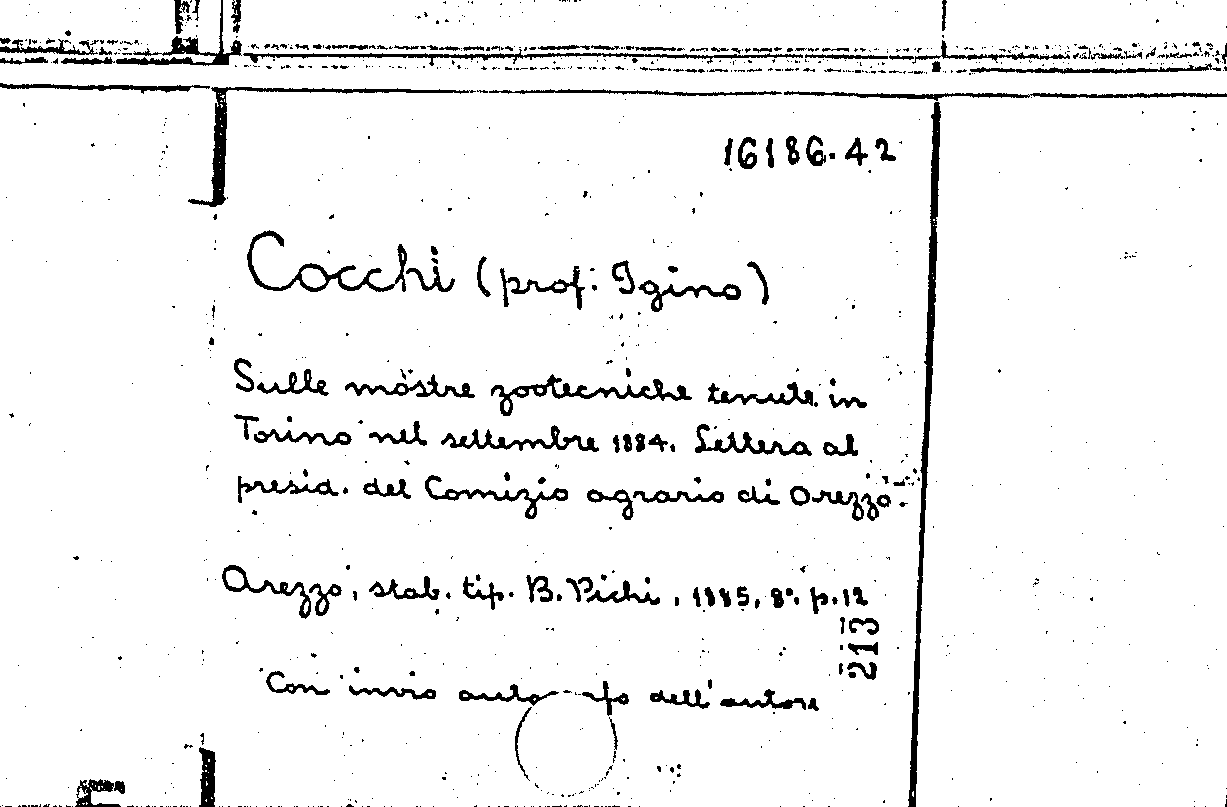 16186.42
Cocchi (prof. Igino)
Sulle mostre zootecniche tenute in
Torino nel settembre 1884. Lettera al
presid. del Comizio agrario di Arezzo.
Arezzo, stab. tip. B. Pichi, 1885, 8°, p.12
213
Con invio dell'autore